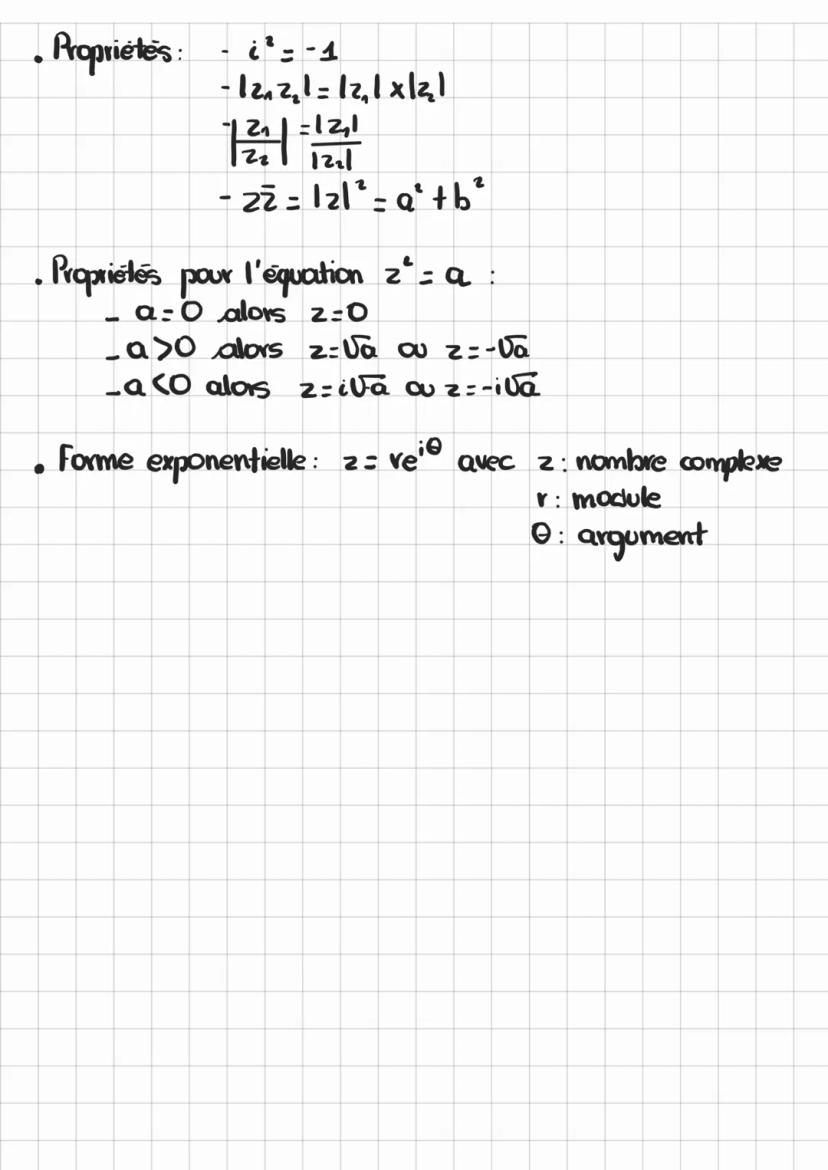 . Propriétés : - i² = -1
- |z₁ z₂| = |z₁| × |z₂|
- |z₁/z₂| = |z₁|/|z₂|
- zz̄ = |z|² = a² + b²
. Propriétés pour l'équation z² = a :
- a = 0 alors z = 0
- a > 0 alors z = √a ou z = -√a
- a < 0 alors z = i√a ou z = -i√a
. Forme exponentielle : z = re^{iθ} avec z : nombre complexe
r : module
θ : argument